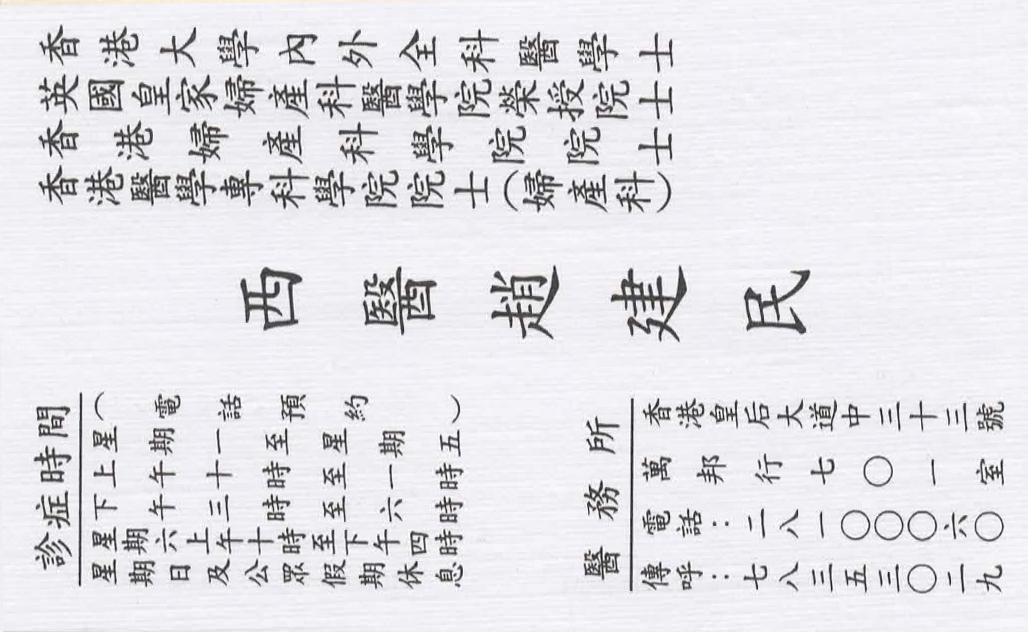 香港大學內外全科醫學士
英國皇家婦產科醫學院榮授院士
香港婦產科學院院士
香港醫學專科學院院士(婦產科)
西醫趙建民
診症時間
(電話預約)
星期一至星期五
上午十時至一時
下午三時至六時
星期六上午十時至下午四時
星期日及公眾假期休息
醫務所
香港皇后大道中三十三號
萬邦行七〇一室
電話:二八一〇〇〇六〇
傳呼:七八三五三〇二九